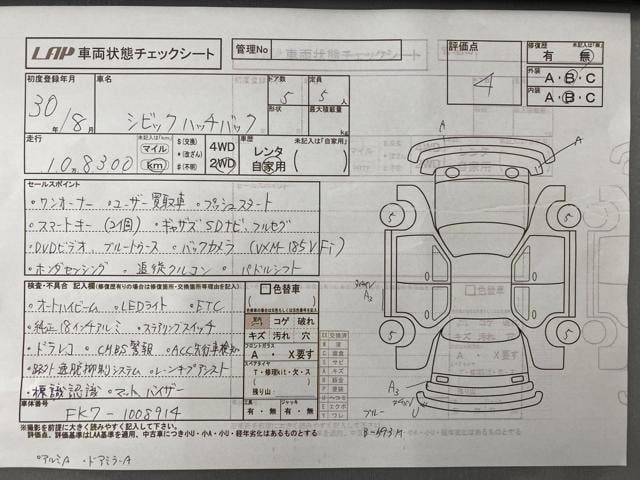 LAP 車両状態チェックシート
管理No
評価点
4
修復歴 未記入は「無」
有 無
外装 A・B・C
内装 A・B・C
初度登録年月
30年/8月
車名
シビックハッチバック
ドア数
5
定員
5人
形状
最大積載量
kg
走行
未記入は「km」
10万8300
マイル
km
$(交換)
*(改ざん)
#(不明)
4WD
2WD
車歴 未記入は「自家用」
レンタ
自家用
セールスポイント
・ワンオーナー ・ユーザー買取車 ・プッシュスタート
・スマートキー(2個) ・ギャザズSDナビ,フルセグ
・DVDビデオ,ブルートゥース ・バックカメラ(VXM-185VFi)
・ホンダセンシング ・追従クルコン ・パドルシフト
検査・不具合 記入欄(修復歴有りの場合は修復箇所・交換箇所等明確な記載を)
・オートハイビーム ・LEDライト ・ETC
・純正18インチアルミ ・ステアリングスイッチ
・ドラレコ ・CMBS警報 ・ACC先行車検知
・路外逸脱抑制システム ・レーンキープアシスト
・標識認識 ・マット,バイザー
色替車
室内
コゲ 破れ
キズ 汚れ 穴
フロントガラス
A ・ ・X要す
スペアタイヤ
T・修理kit・欠・ス
残り山:
工具
有・無
ジャッキ
有・無
車体番号
FK7-1008914
※撮影を前提に大きく読みやすく記入して下さい。
評価点、評価基準はLAA基準を適用、中古車につき小U・小A・小U・経年劣化はあるものとする
・アルミA ・ドアミラーA
A
A
5
5
5
5
A3
A3
U
ブルー
B-593M